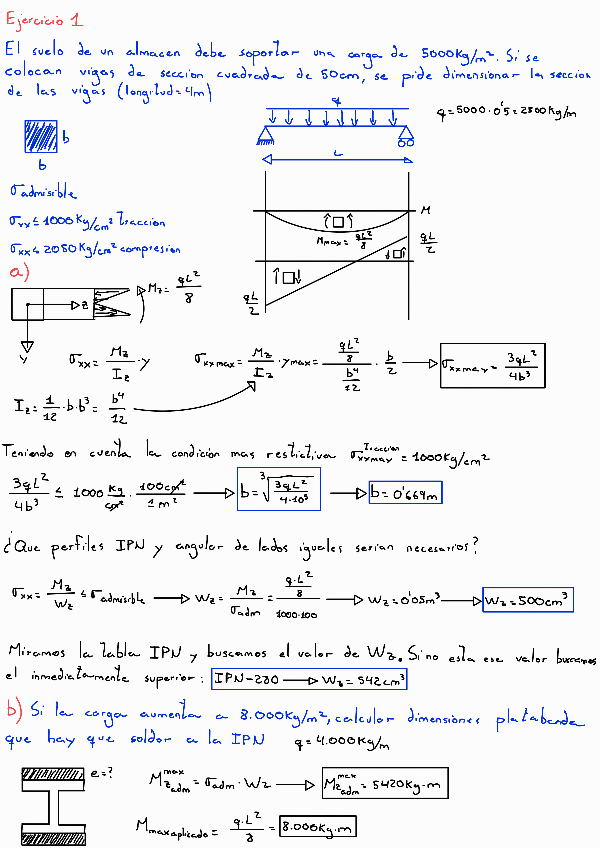 Ejercicio 1
El suelo de un almacen debe soportar una carga de 5000Kg/m². Si se
colocan vigas de seccion cuadrada de 50cm, se pide dimensionar la seccion
de las vigas (longitud=4m)
q
q=5000·0'5=2500Kg/m
b
b
L
σadmisible
σxx≤1000Kg/cm² Traccion
σxx≤2080Kg/cm² compresion
M
Mmax=qL²/8
qL/2
qL/2
a)
Mz=qL²/8
z
y
σxx=Mz/Iz·y
σxxmax=Mz/Iz·ymax=(qL²/8)/(b⁴/12)·b/2
σxxmax=3qL²/4b³
Iz=1/12·b·b³=b⁴/12
Teniendo en cuenta la condicion mas restictiva σxxmax Traccion=1000Kg/cm²
3qL²/4b³≤1000 Kg/cm²·100cm²/1m²
b=∛(3qL²/4·10⁵)
b=0'669m
¿Que perfiles IPN y angular de lados iguales serian necesarios?
σxx=Mz/Wz≤σadmisible
Wz=Mz/σadm=(q·L²/8)/1000·100
Wz=0'05m³
Wz=500cm³
Miramos la tabla IPN y buscamos el valor de Wz. Si no esta ese valor buscamos
el inmediatamente superior: IPN-280 Wz=542cm³
b) Si la carga aumenta a 8.000Kg/m², calcular dimensiones platabanda
que hay que soldar a la IPN q=4.000Kg/m
e=?
Mz adm max=σadm·Wz
Mz adm max=5420Kg·m
Mmaxaplicado=q·L²/8=8.000Kg·m